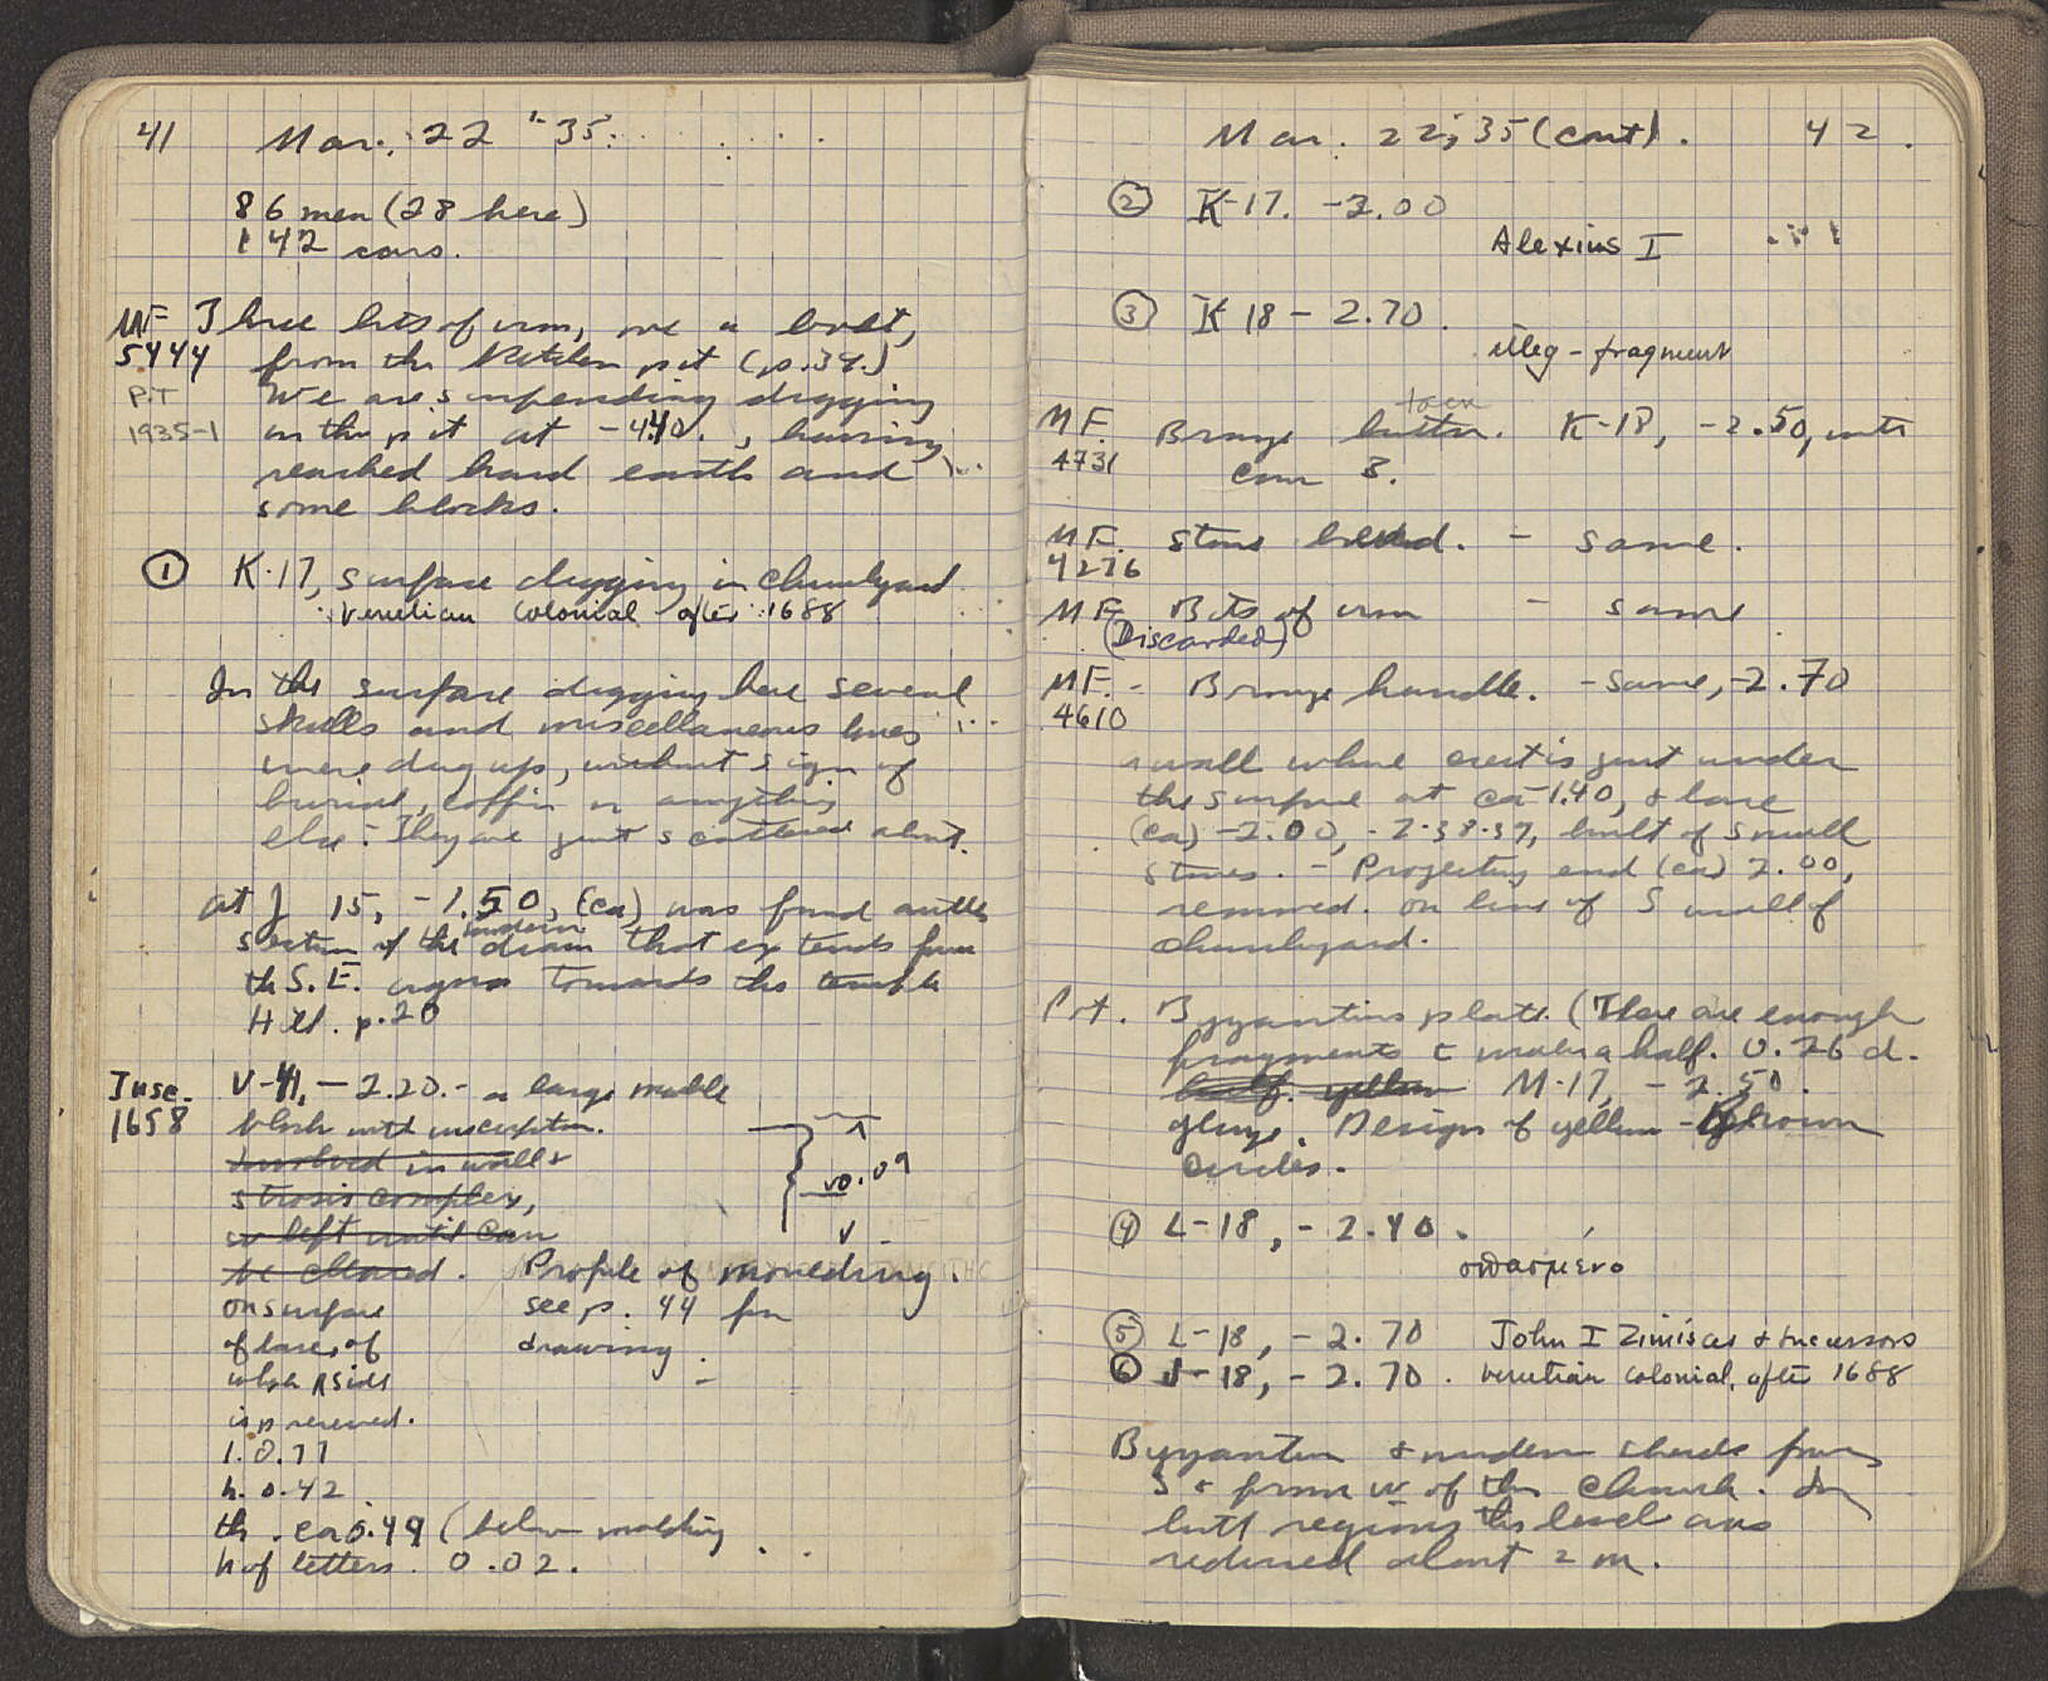 41 Mar. 22 '35.
86 men (28 here)
142 cars.
MF Three bits of iron, one a bolt,
5444 from the Kitchen pit (p. 34.)
P.T We are suspending digging
1935-1 in the pit at -4.40., having
reached hard earth and
some blocks.
① K-17, surface digging in churchyard
Venetian Colonial after 1688
In the surface digging here several
skulls and miscellaneous bones
were dug up, without sign of
burial, coffin or anything
else. They are just scattered about.
At J 15, -1.50, (ca) was found another
modern
section of the drain that extends from
the S.E. agora towards the temple
Hill. p. 20
Insc. V-41, -2.20. - a large marble
1658 block with inscription.
involved in wall &
strosis complex,
so left until can
be cleared.
0.09
Profile of moulding.
see p. 44 for
drawing.
on surface
of base, of
which sides
is preserved.
l. 0.77
h. 0.42
th. ca 0.49 (below molding
h of letters. 0.02.
Mar. 22, 35 (cont). 42.
② K-17. -3.00
Alexius I
③ K 18 - 2.70.
illeg - fragment
tack
MF. Bronze button. K-18, -2.50, with
4731 coin 3.
MF. Stone bead. - same.
4276
MF Bits of iron - same
(Discarded)
MF. - Bronze handle. - same, -2.70
4610
a wall whose crest is just under
the surface at ca -1.40, & base
(ca) -2.00, -2.38.37, built of small
stones. - Projecting end (ca) 2.00,
removed. on line of S wall of
churchyard.
Pot. Byzantine plate. (There are enough
fragments to make a half. 0.26 d.
half. yellow M-17, -2.50.
glaze. Design of yellow-brown
circles.
④ L-18, -2.40.
σπασμένο
⑤ L-18, -2.70 John I Zimisces & successors
⑥ J-18, -2.70. Venetian Colonial, after 1688
Byzantine & modern sherds from
S & from W of the church. In
both regions the level was
reduced about 2 m.